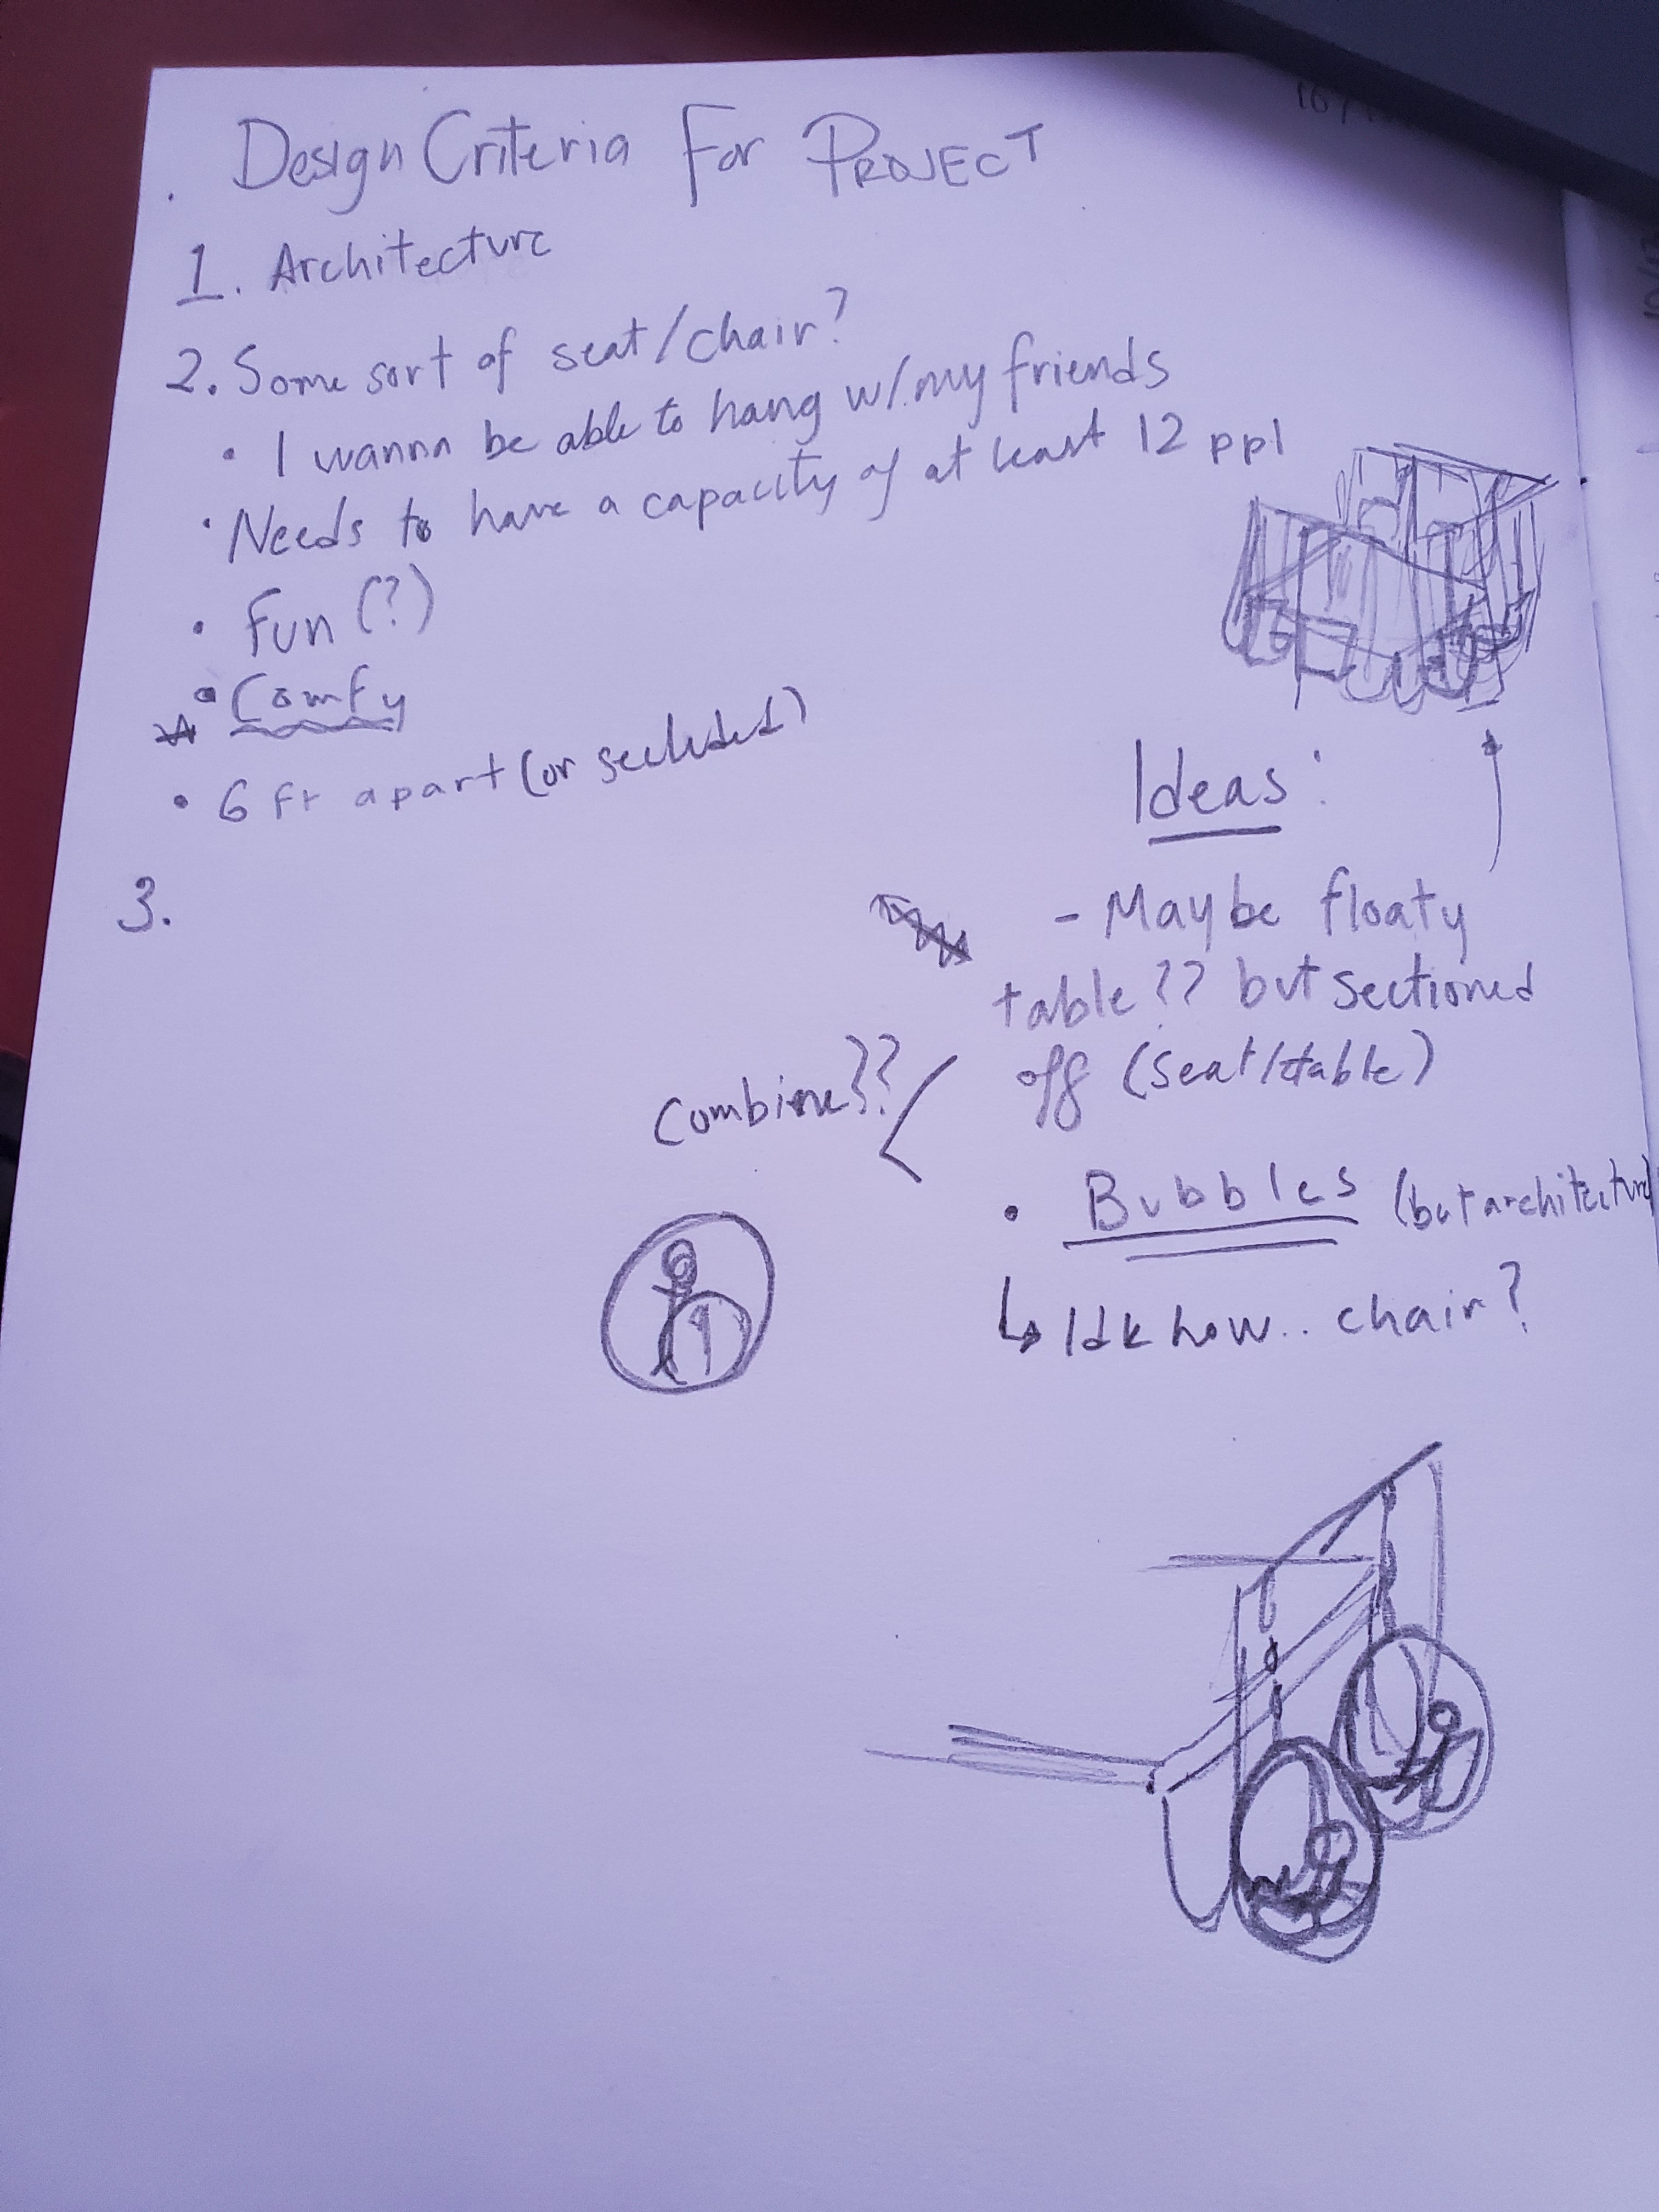 Design Criteria For PROJECT
1. Architecture
2. Some sort of seat/chair?
• I wanna be able to hang w/ my friends
• Needs to have a capacity of at least 12 ppl
• Fun (?)
• Comfy
• 6 ft apart (or secluded)
3.
Ideas:
- Maybe floaty
table?? but sectioned
off (seat/table)
Combine??
• Bubbles (but architecture)
↳ Idk how.. chair?